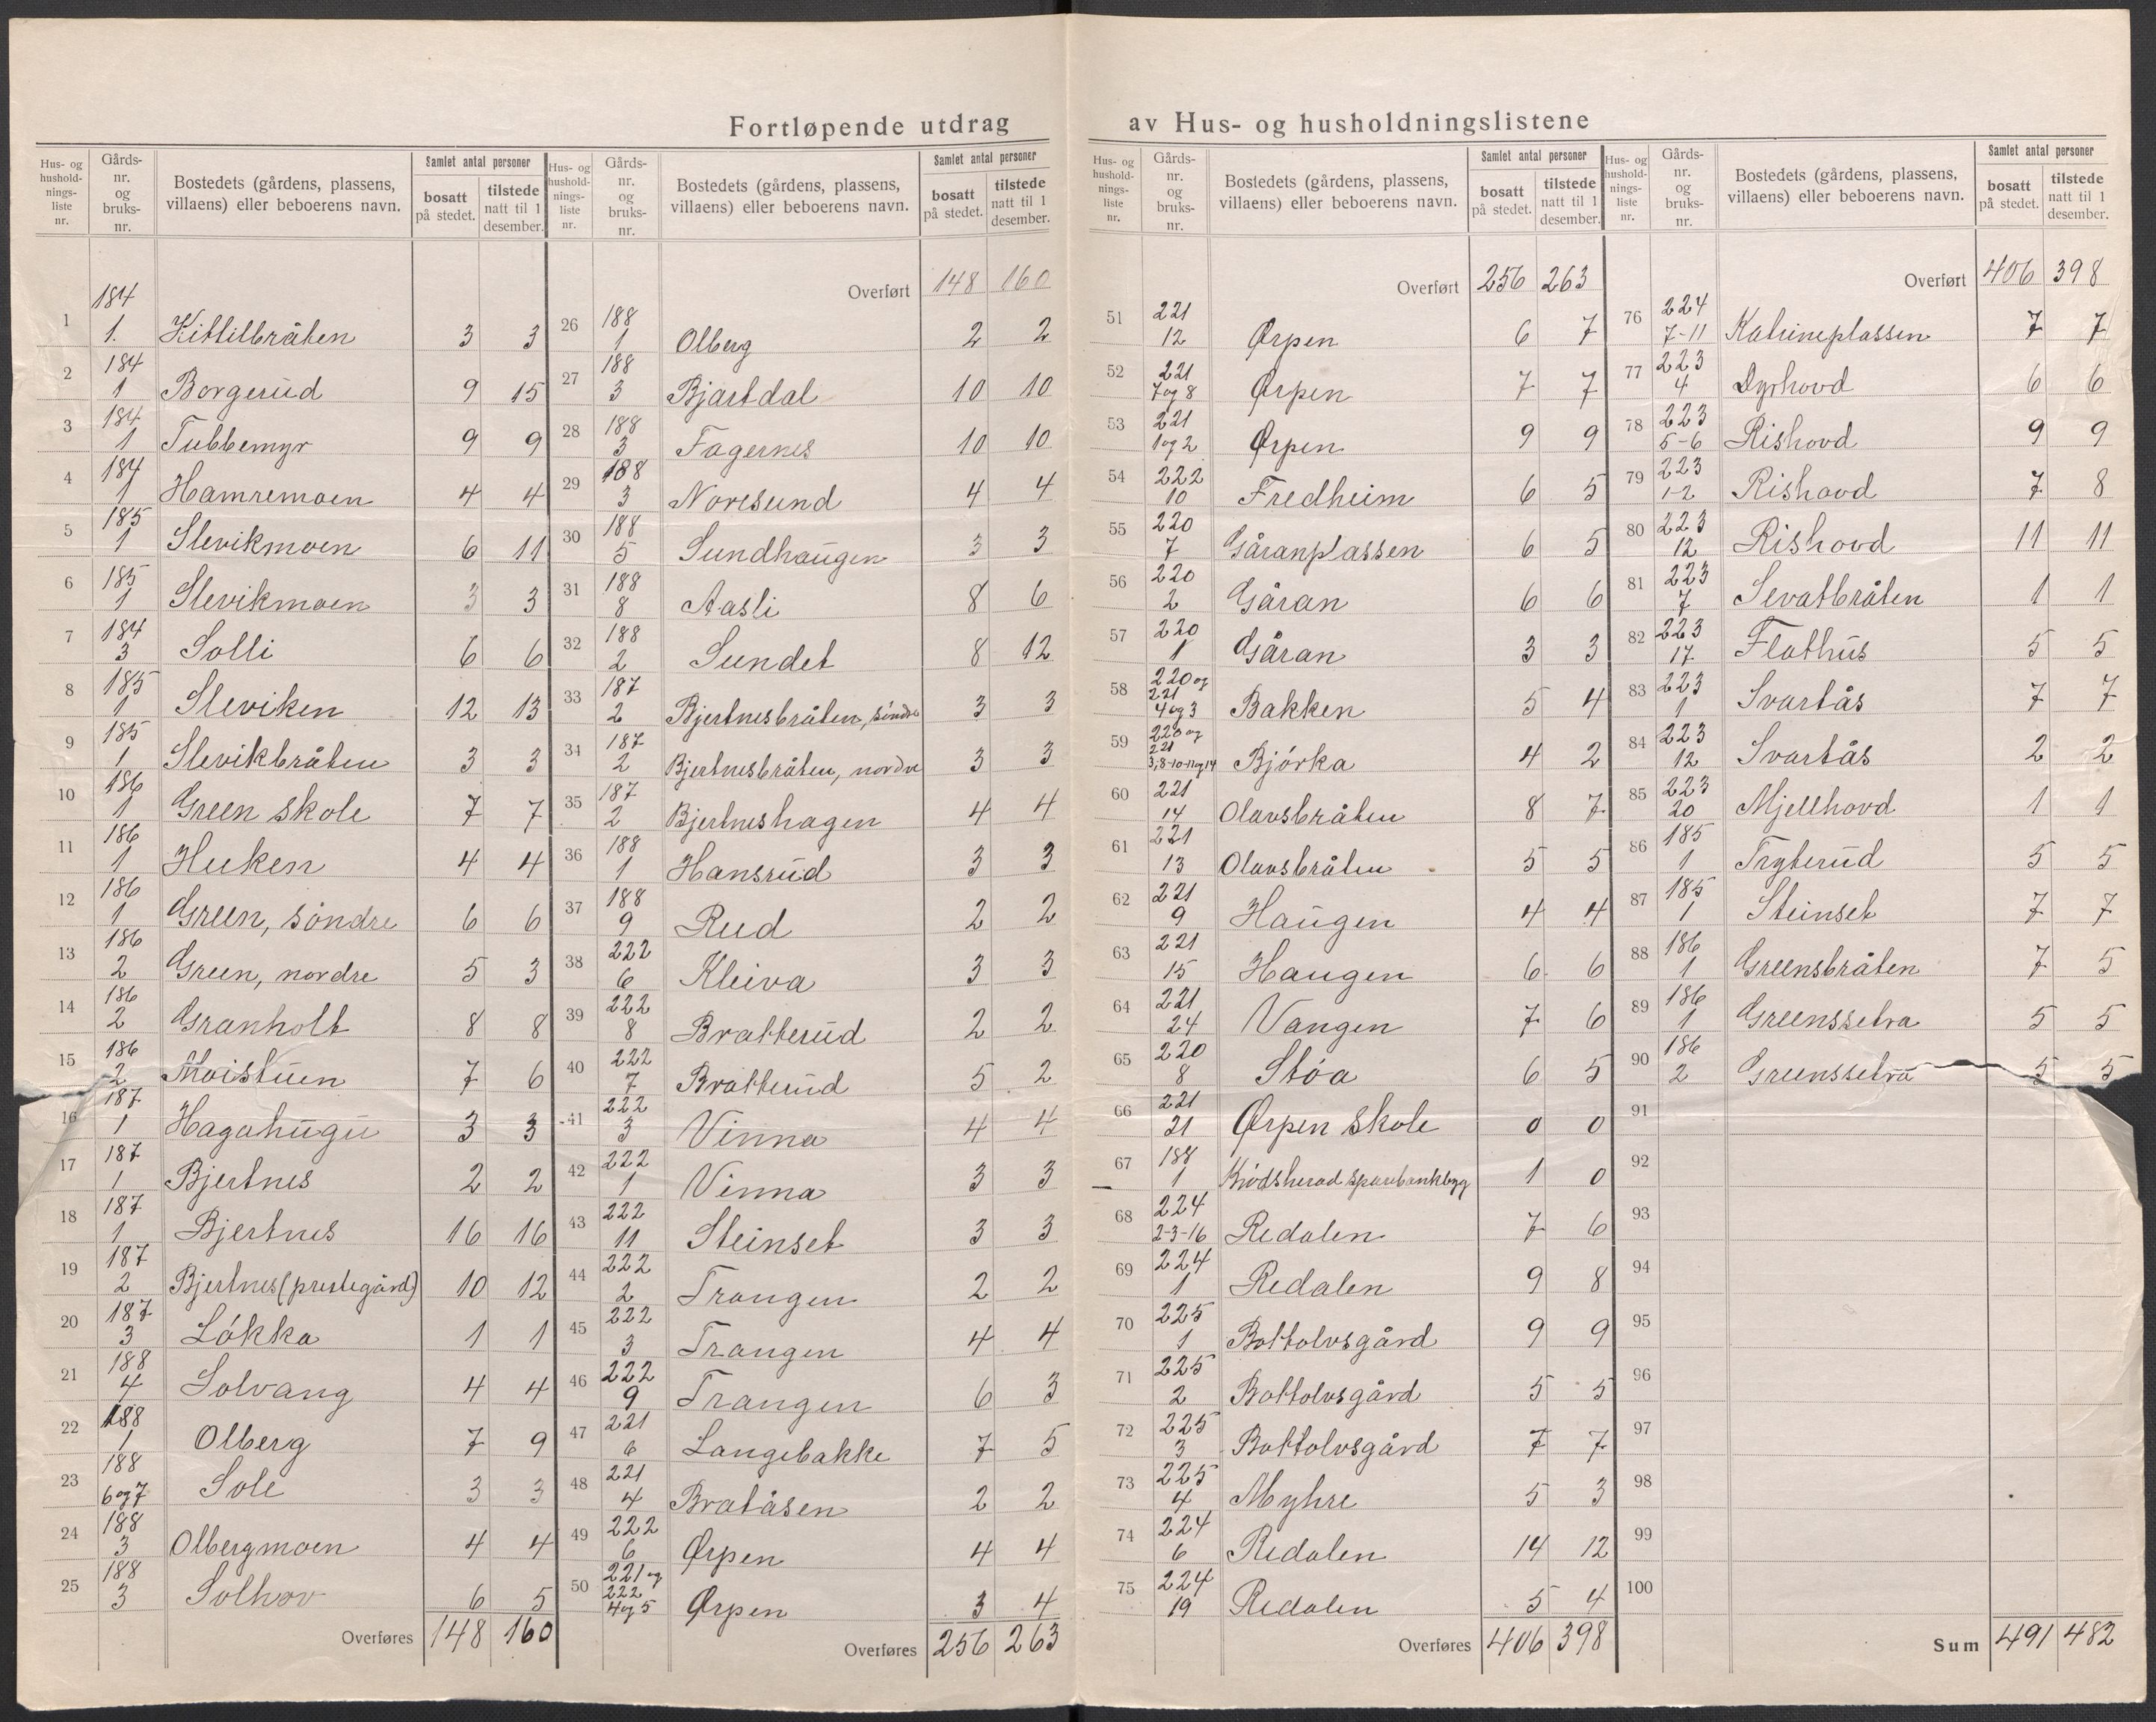 Fortløpende utdrag av Hus- og husholdningslistene
Hus- og hushold-nings-liste nr. | Gårds-nr. og bruks-nr. | Bostedets (gårdens, plassens, villaens) eller beboerens navn. | Samlet antal personer | bosatt på stedet. | tilstede natt til 1 desember.
1 184 1. Kittilbråten 3 3
2 184 1 Borgerud 9 15
3 184 1 Tubbemyr 9 9
4 184 1 Hamremoen 4 4
5 185 1 Slevikmoen 6 11
6 185 1 Slevikmoen 3 3
7 184 3 Solli 6 6
8 185 1 Sleviken 12 13
9 185 1 Slevikbråten 3 3
10 186 1 Green skole 7 7
11 186 1 Huken 4 4
12 186 1 Green, søndre 6 6
13 186 2 Green, nordre 5 3
14 186 2 Granholt 8 8
15 186 2 Moistuen 7 6
16 187 1 Hagahugu 3 3
17 187 1 Bjertnes 2 2
18 187 1 Bjertnes 16 16
19 187 2 Bjertnes (prestegård) 10 12
20 187 3 Løkka 1 1
21 188 4 Solvang 4 4
22 188 1 Olberg 7 9
23 188 6 og 7 Sole 3 3
24 188 3 Olbergmoen 4 4
25 188 3 Solhov 6 5
Overføres 148 160
Hus- og hushold-nings-liste nr. | Gårds-nr. og bruks-nr. | Bostedets (gårdens, plassens, villaens) eller beboerens navn. | Samlet antal personer | bosatt på stedet. | tilstede natt til 1 desember.
Overført 148 160
26 188 1 Olberg 2 2
27 188 3 Bjartdal 10 10
28 188 3 Fagernes 10 10
29 188 3 Noresund 4 4
30 188 5 Sundhaugen 3 3
31 188 8 Aasli 8 6
32 188 2 Sundet 8 12
33 187 2 Bjertnesbråten, søndre 3 3
34 187 2 Bjertnesbråten, nordre 3 3
35 187 2 Bjertneshagen 4 4
36 188 1 Hansrud 3 3
37 188 9 Rud 2 2
38 222 6 Kleiva 3 3
39 222 8 Bratterud 2 2
40 222 7 Bratterud 5 2
41 222 3 Vinna 4 4
42 222 1 Vinna 3 3
43 222 11 Steinset 3 3
44 222 2 Trangen 2 2
45 222 3 Trangen 4 4
46 222 9 Trangen 6 3
47 221 6 Langebakke 7 5
48 221 4 Bratåsen 2 2
49 222 6 Ørpen 4 4
50 221 og 222 4 og 5 Ørpen 3 4
Overføres 256 263
Hus- og hushold-nings-liste nr. | Gårds-nr. og bruks-nr. | Bostedets (gårdens, plassens, villaens) eller beboerens navn. | Samlet antal personer | bosatt på stedet. | tilstede natt til 1 desember.
Overført 256 263
51 221 12 Ørpen 6 7
52 221 7 og 8 Ørpen 7 7
53 221 1 og 2 Ørpen 9 9
54 222 10 Fredheim 6 5
55 220 7 Gåranplassen 6 5
56 220 2 Gåran 6 6
57 220 1 Gåran 3 3
58 220 og 221 4 og 3 Bakken 5 4
59 220 og 221 3, 8-10-11 og 14 Bjørka 4 2
60 221 14 Olavsbråten 8 7
61 221 13 Olavsbråten 5 5
62 221 9 Haugen 4 4
63 221 15 Haugen 6 6
64 221 24 Vangen 7 6
65 220 8 Støa 6 5
66 221 21 Ørpen skole 0 0
67 188 1 Krødsherad sparebankbyg 1 0
68 224 2-3-16 Redalen 7 6
69 224 1 Redalen 9 8
70 225 1 Bottolvsgård 9 9
71 225 2 Bottolvsgård 5 5
72 225 3 Bottolvsgård 7 7
73 225 4 Myhre 5 3
74 224 6 Redalen 14 12
75 224 19 Redalen 5 4
Overføres 406 398
Hus- og hushold-nings-liste nr. | Gårds-nr. og bruks-nr. | Bostedets (gårdens, plassens, villaens) eller beboerens navn. | Samlet antal personer | bosatt på stedet. | tilstede natt til 1 desember.
Overført 406 398
76 224 7-11 Katrineplassen 7 7
77 223 4 Dyrhovd 6 6
78 223 5-6 Rishovd 9 9
79 223 1-2 Rishovd 7 8
80 223 12 Rishovd 11 11
81 223 7 Sevatbråten 1 1
82 223 17 Flathus 5 5
83 223 1 Svartås 7 7
84 223 12 Svartås 2 2
85 223 20 Mjellhovd 1 1
86 185 1 Tryterud 5 5
87 185 1 Steinset 7 7
88 186 1 Greensbråten 7 5
89 186 1 Greenssetra 5 5
90 186 2 Greenssetra 5 5
91
92
93
94
95
96
97
98
99
100
Sum 491 482